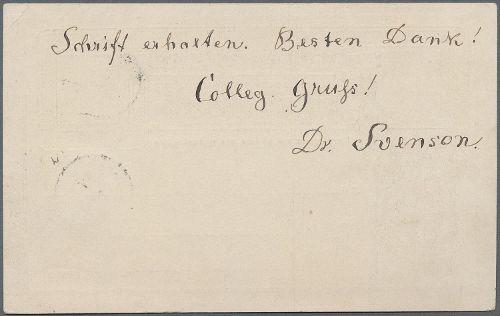 Schrift erhalten. Besten Dank!
Colleg. Gruss!
Dr. Svenson.